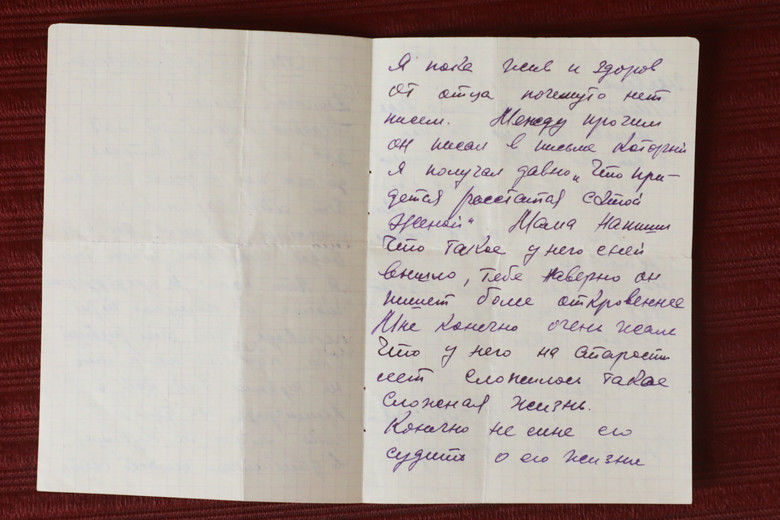 Я пока жив и здоров
от отца почемуто нет
писем. Между прочим
он писал в письме который
я получал давно „Что при-
дется расстатся с этой
женой“ Мама напиши
Что такое у него с ней
вышло, тебе наверно он
пишет боле откровеннее
Мне конечно очень жаль
Что у него на старости
лет сложилось такое
сложеная жизнь.
Конечно не мне его
судить о его жизни